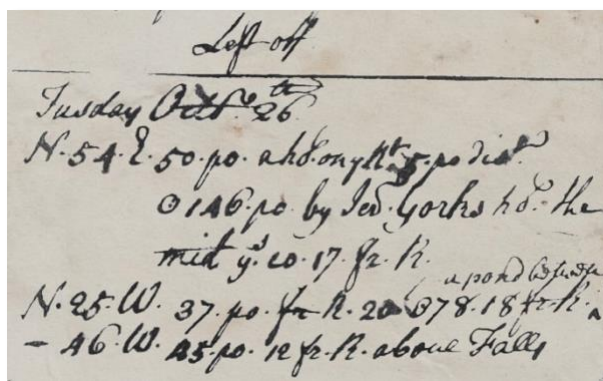 Left off
Tusday Octr. 26th
N. 54. E. 50. po. a hd. on ye Rt 5. po dist
0146. po by Jed. Yorks hd. the
mid ys. 10. 17. fr. R.
a pond
N. 25. W. 37. po. fr R. 20 078. 18 fr. R.
- 46. W. 45. po. 12 fr. R. above Falls